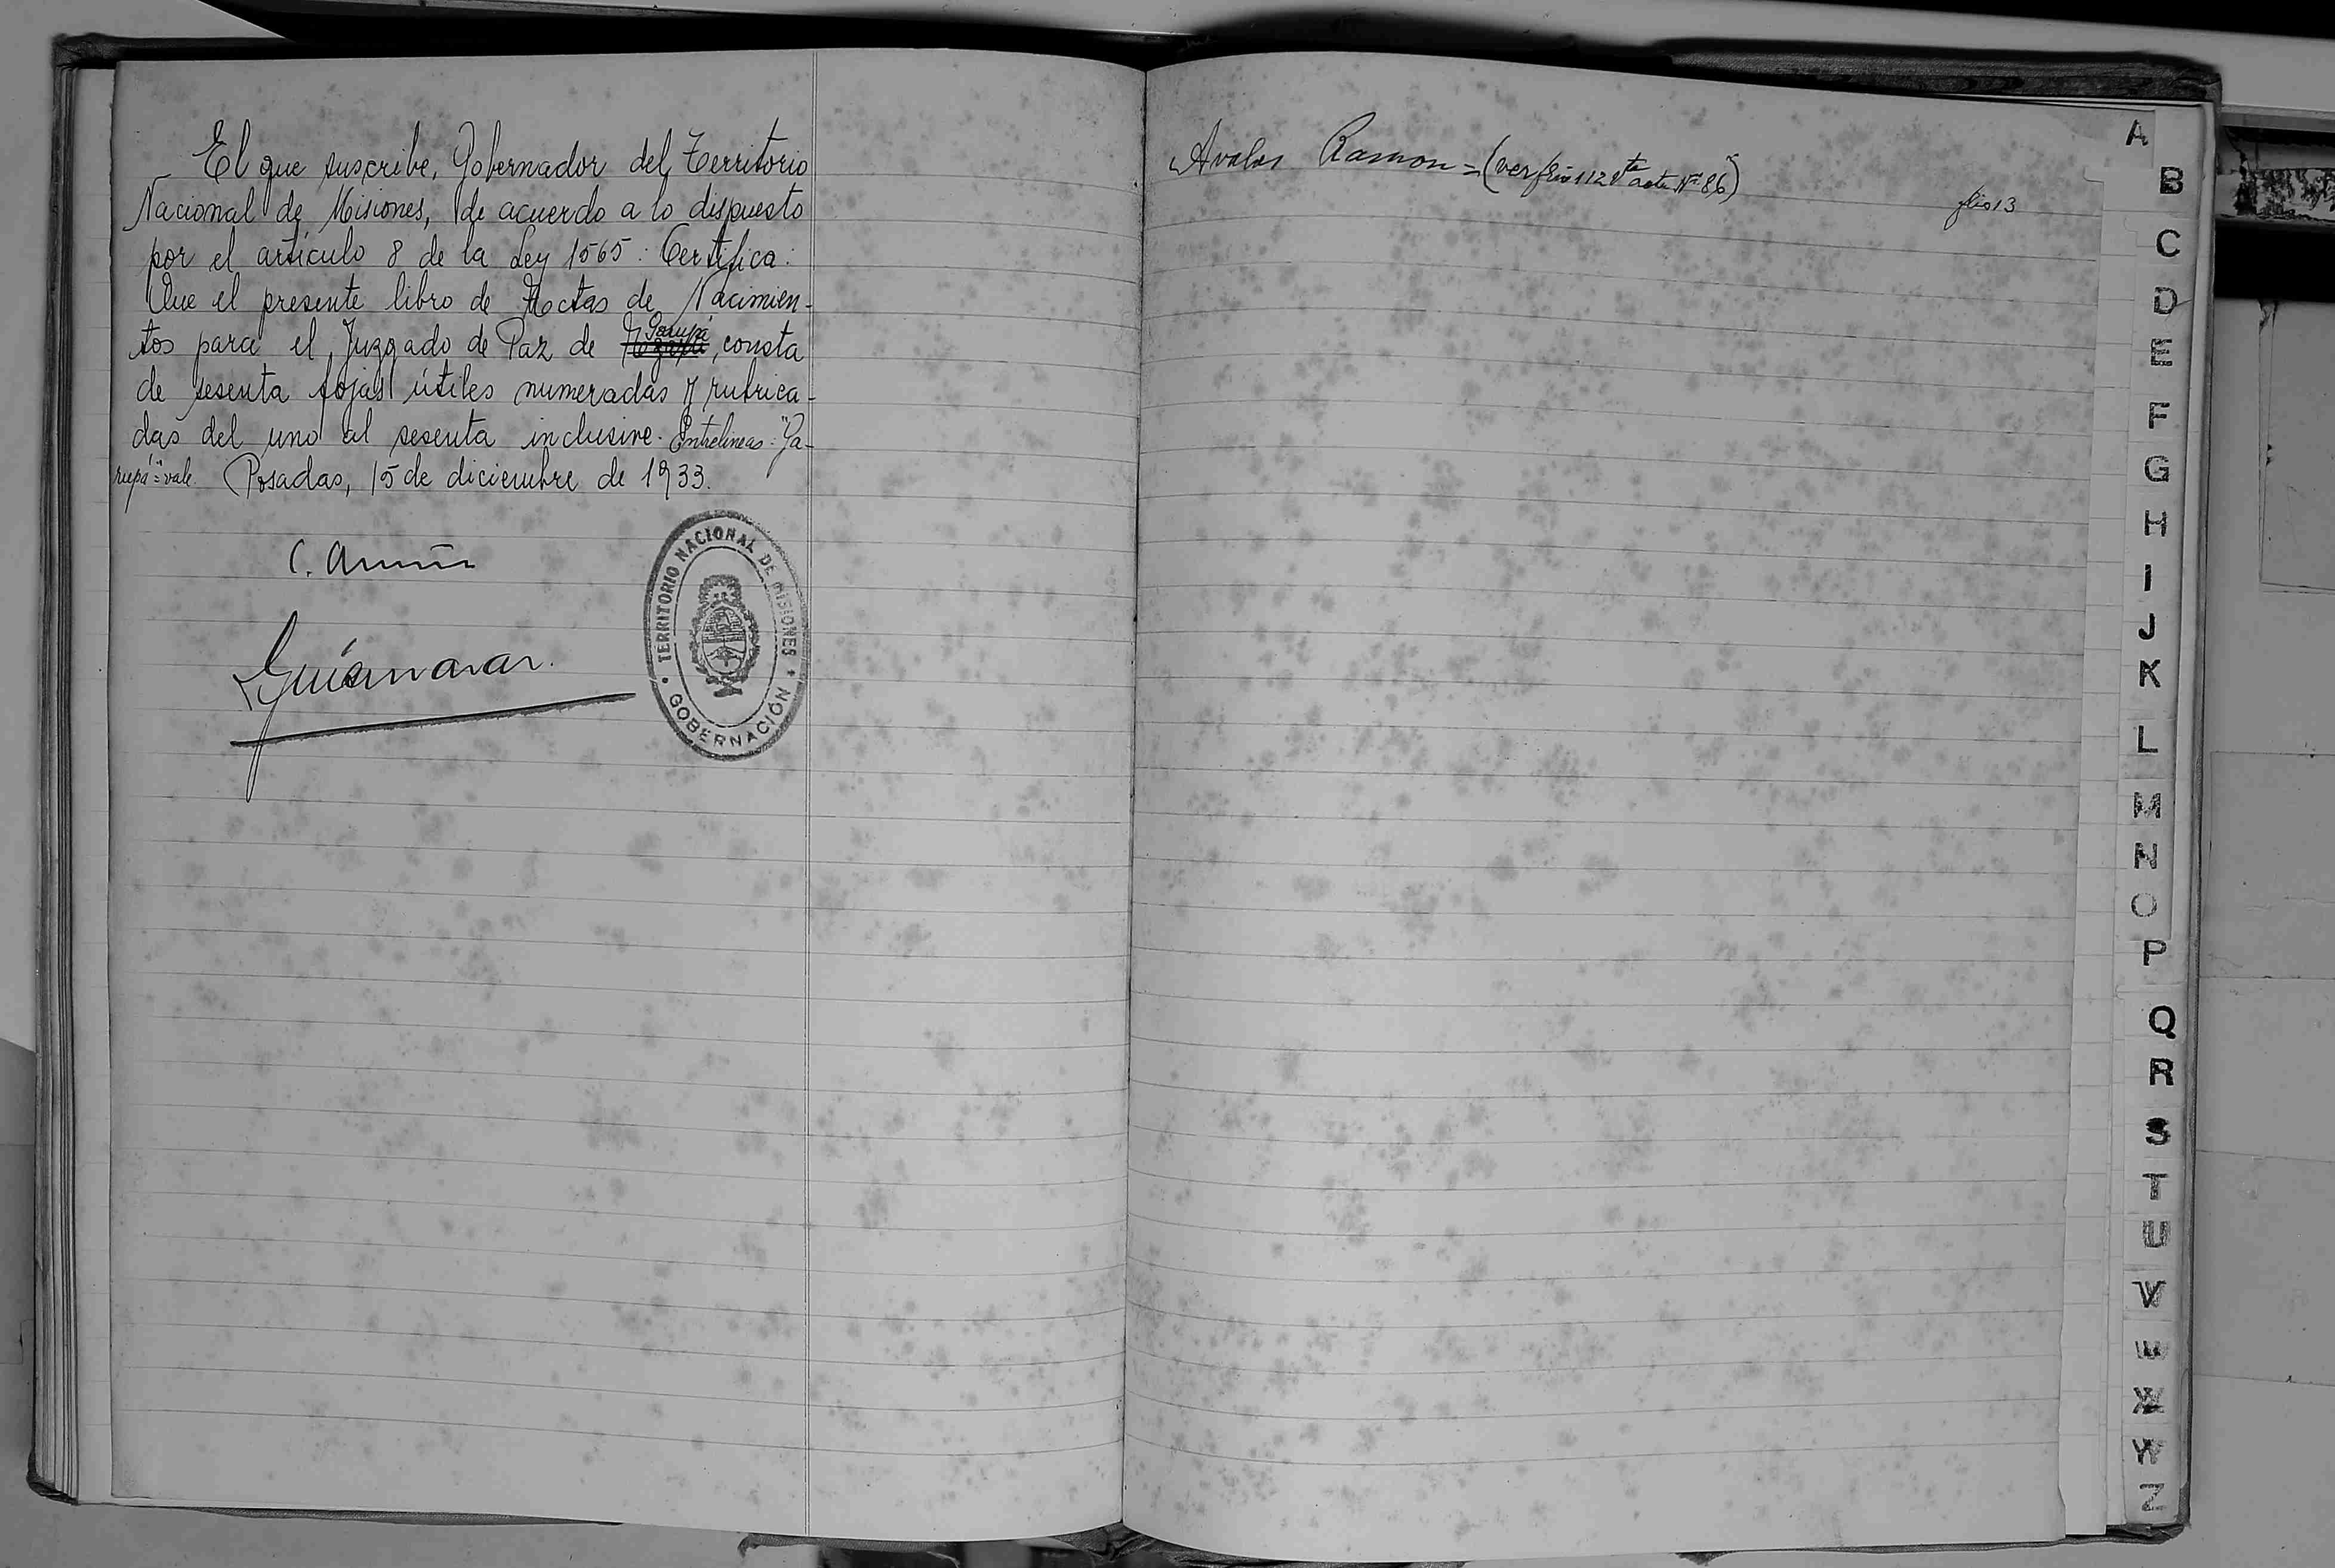 El que suscribe, Gobernador del Territorio
Nacional de Misiones, de acuerdo a lo dispuesto
por el artículo 8 de la Ley 1565: Certifica:
Que el presente libro de Actas de Nacimien-
tos para el Juzgado de Paz de Garupá, consta
de sesenta fojas útiles numeradas y rubrica-
das del uno al sesenta inclusive. Entrelíneas: "Ga-
rupá" = vale. Posadas, 15 de diciembre de 1933.
C.
TERRITORIO NACIONAL DE MISIONES
GOBERNACIÓN
Avalos Ramon = (ver folio 112 vta acta Nº 86)
folio 13
A
B
C
D
E
F
G
H
I
J
K
L
M
N
O
P
Q
R
S
T
U
V
W
X
Y
Z